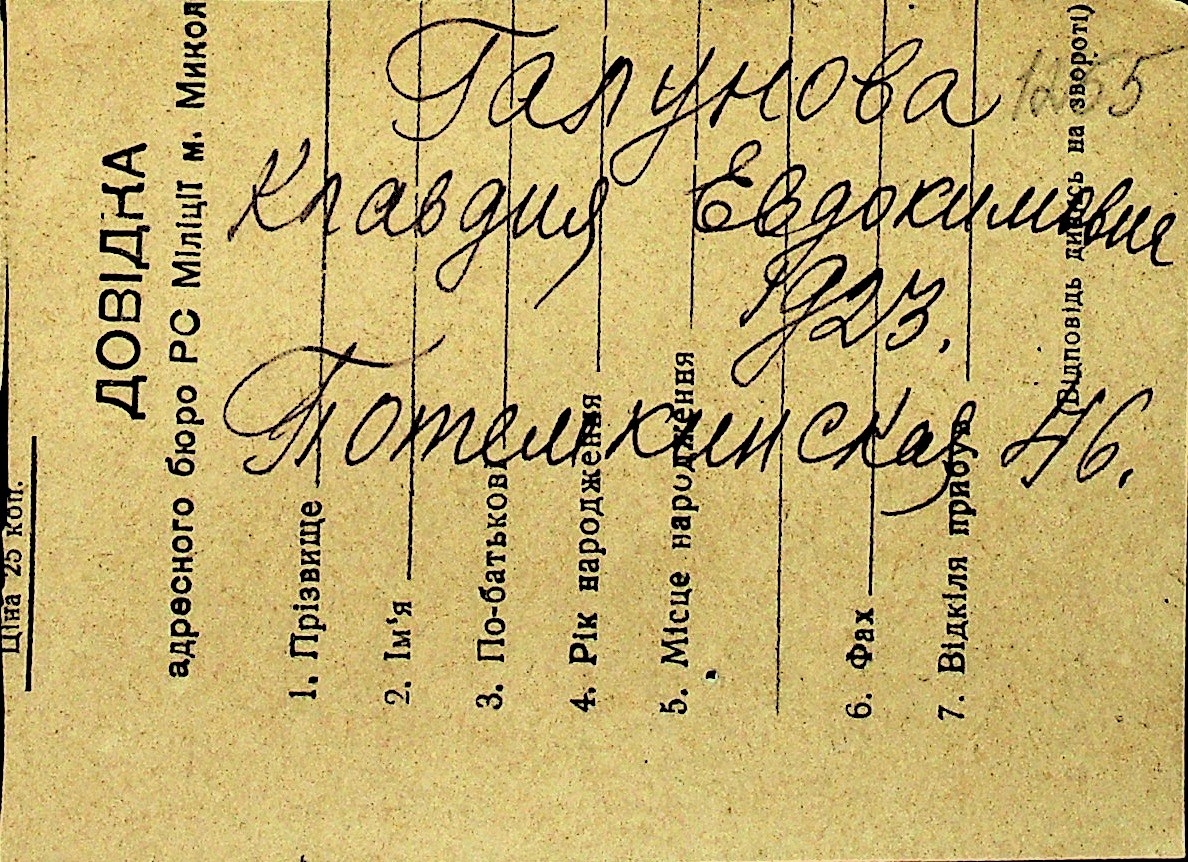 Гапунова 1255
Клавдия Евдокимовна
1923.
Потемкинская 46.
Ціна 25 коп.
ДОВІДКА
адресного бюро РС Міліції м. Микол
1. Прізвище
2. Ім'я
3. По-батькові
4. Рік народження
5. Місце народження
6. Фах
7. Відкіля прибув
(Відповідь дивись на звороті)